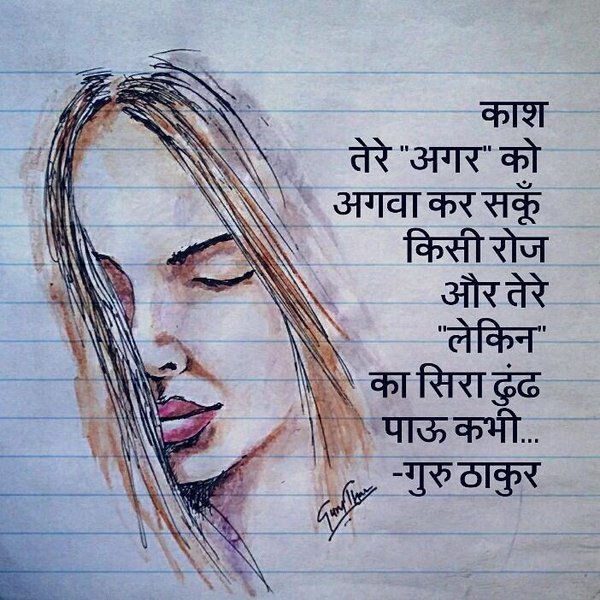 काश
तेरे "अगर" को
अगवा कर सकूँ
किसी रोज
और तेरे
"लेकिन"
का सिरा ढुंढ
पाऊ कभी...
-गुरु ठाकुर